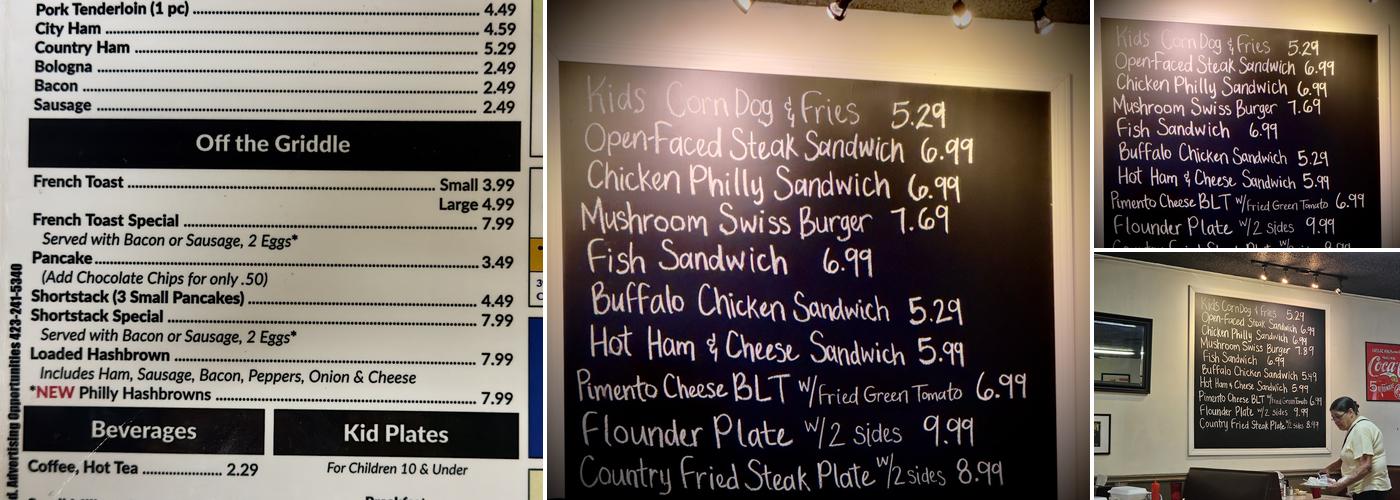 Pork Tenderloin (1 pc) 4.49
City Ham 4.59
Country Ham 5.29
Bologna 2.49
Bacon 2.49
Sausage 2.49
Off the Griddle
French Toast Small 3.99
Large 4.99
French Toast Special 7.99
Served with Bacon or Sausage, 2 Eggs*
Pancake 3.49
(Add Chocolate Chips for only .50)
Shortstack (3 Small Pancakes) 4.49
Shortstack Special 7.99
Served with Bacon or Sausage, 2 Eggs*
Loaded Hashbrown 7.99
Includes Ham, Sausage, Bacon, Peppers, Onion & Cheese
*NEW Philly Hashbrowns 7.99
Beverages
Kid Plates
Coffee, Hot Tea 2.29
For Children 10 & Under
d. Advertising Opportunities 423-241-5340
Kids Corn Dog & Fries 5.29
Open-Faced Steak Sandwich 6.99
Chicken Philly Sandwich 6.99
Mushroom Swiss Burger 7.69
Fish Sandwich 6.99
Buffalo Chicken Sandwich 5.29
Hot Ham & Cheese Sandwich 5.99
Pimento Cheese BLT w/Fried Green Tomato 6.99
Flounder Plate w/2 sides 9.99
Country Fried Steak Plate w/2 sides 8.99
Kids Corn Dog & Fries 5.29
Open-Faced Steak Sandwich 6.99
Chicken Philly Sandwich 6.99
Mushroom Swiss Burger 7.69
Fish Sandwich 6.99
Buffalo Chicken Sandwich 5.29
Hot Ham & Cheese Sandwich 5.99
Pimento Cheese BLT w/Fried Green Tomato 6.99
Flounder Plate w/2 sides 9.99
Kids Corn Dog & Fries 5.29
Open-Faced Steak Sandwich 6.99
Chicken Philly Sandwich 6.99
Mushroom Swiss Burger 7.89
Fish Sandwich 6.99
Buffalo Chicken Sandwich 5.49
Hot Ham & Cheese Sandwich 5.99
Pimento Cheese BLT w/Fried Green Tomato 6.99
Flounder Plate w/2 sides 9.99
Country Fried Steak Plate w/2 sides 8.99
Coca